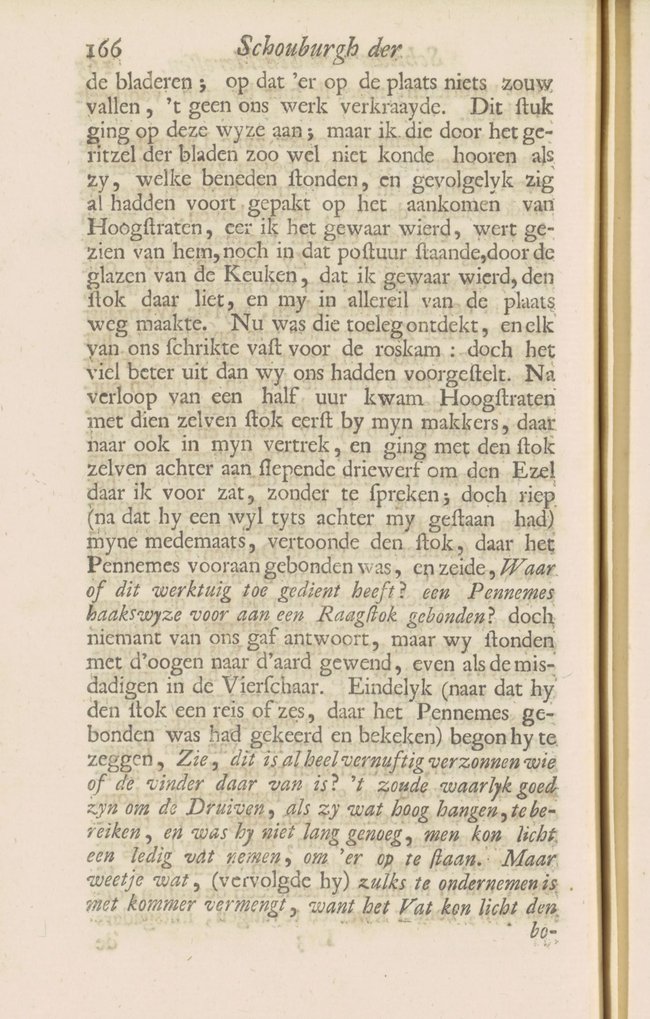 166 Schouburgh der
de bladeren; op dat 'er op de plaats niets zouw
vallen, 't geen ons werk verkraayde. Dit ſtuk
ging op deze wyze aan; maar ik die door het ge-
ritzel der bladen zoo wel niet konde hooren als
zy, welke beneden ſtonden, en gevolgelyk zig
al hadden voort gepakt op het aankomen van
Hoogſtraten, eer ik het gewaar wierd, wert ge-
zien van hem, noch in dat poſtuur ſtaande, door de
glazen van de Keuken, dat ik gewaar wierd, den
ſtok daar liet, en my in allereil van de plaats
weg maakte. Nu was die toeleg ontdekt, en elk
van ons ſchrikte vaſt voor de roskam: doch het
viel beter uit dan wy ons hadden voorgeſtelt. Na
verloop van een half uur kwam Hoogſtraten
met dien zelven ſtok eerſt by myn makkers, daar
naar ook in myn vertrek, en ging met den ſtok
zelven achter aan ſlepende driewerf om den Ezel
daar ik voor zat, zonder te ſpreken; doch riep
(na dat hy een wyl tyts achter my geſtaan had)
myne medemaats, vertoonde den ſtok, daar het
Pennemes vooraan gebonden was, en zeide, Waar
of dit werktuig toe gedient heeft? een Pennemes
haakswyze voor aan een Raagſtok gebonden? doch
niemant van ons gaf antwoort, maar wy ſtonden
met d'oogen naar d'aard gewend, even als de mis-
dadigen in de Vierſchaar. Eindelyk (naar dat hy
den ſtok een reis of zes, daar het Pennemes ge-
bonden was had gekeerd en bekeken) begon hy te
zeggen, Zie, dit is al heel vernuftig verzonnen wie
of de vinder daar van is? 't zoude waarlyk goed
zyn om de Druiven, als zy wat hoog hangen, te be-
reiken, en was hy niet lang genoeg, men kon licht
een ledig vat nemen, om 'er op te ſtaan. Maar
weetje wat, (vervolgde hy) zulks te ondernemen is
met kommer vermengt, want het Vat kon licht den
bo-